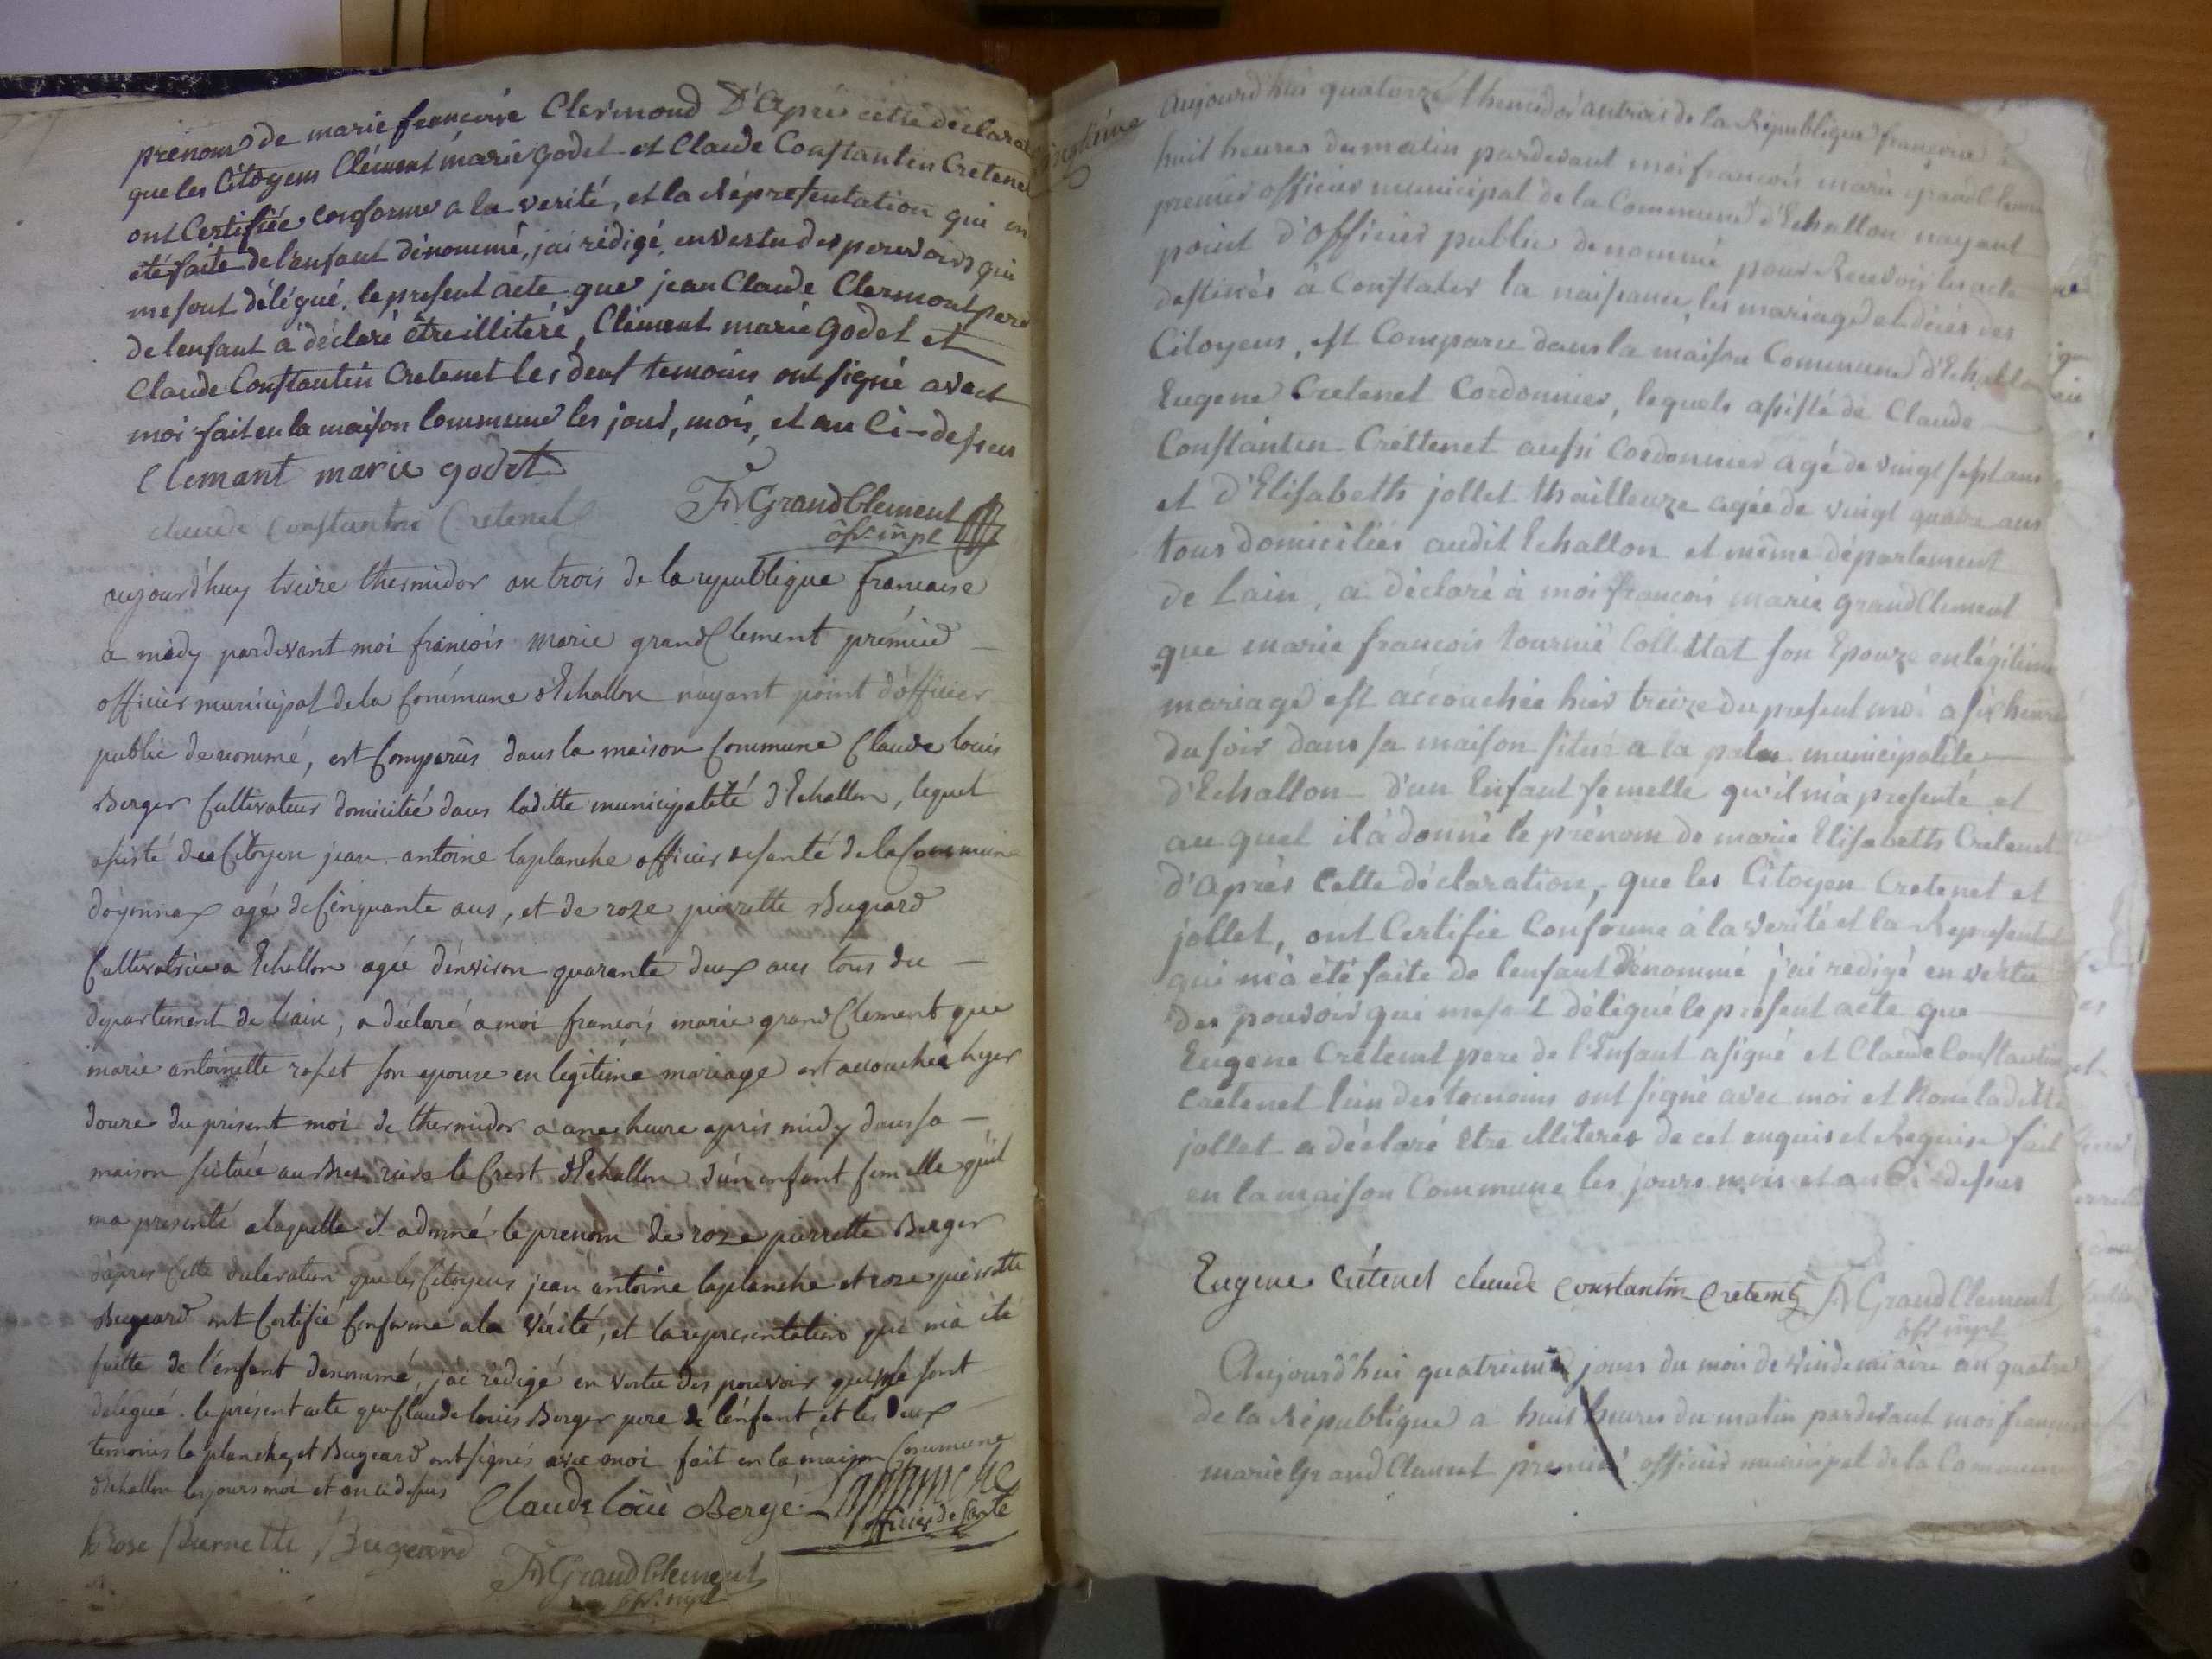 prenoms de marie francoise Clermond D'Après cette déclarat
que les Citoyens Clément marie godet et Claude Constantin Cretenet
ont Certifiée conforme a la verité, et la Réprésentation qui m
été faite de l'enfant dénommé, j'ai rédigé, en vertu des pouvoirs qui
me sont délégué, le present acte que jean Claude Clermont pere
de lenfant a déclaré être illiteré, Clément marie Godet et
Claude Constantin Cretenet les deux temoins ont signé avect
moi fait en la maison Commune les jour, mois, et an Ci-dessus
Clemant marie godet
claude Constantin Cretenet
Fs GrandClement
off. mpl
aujourd'huy treize thermidor an trois de la republique francaise
a midy pardevant moi francois marie grandClement prémier
officier municipal de la Commune d'Echallon n'ayant point d'officier
public denommé, est Comparus dans la maison Commune Claude louis
Berger Cultivateur domicilié dans laditte municipalité d'Echallon, lequel
asisté du Citoyen jean antoine laplanche officier de santé de la Commune
d'oyonnax agé de Cinquante ans, et de roze pierrette Bugeard
Cultivatrice a Echallon agée d'environ quarante deux ans tous du
departement de l'ain, a déclaré a moi francois marie grandClement que
marie antoinette son epouze en legitime mariage est accouchée hyer
douze du present moi de thermidor a une heure apres midy dans sa
maison scituée au le Crest d'Echallon d'un enfant femelle qu'il
ma presenté a laquelle il a donné le prenom de roze pierrette Berger
d'apres Cette declaration que les Citoyens jean antoine laplanche et roze pierrette
Bugeard ont Certifié Conforme a la vérité, et la representation qui m'a été
faitte de l'enfant denommé, j'ai rédigé en vertu des pouvoir qui me sont
délégué. le présent acte que Claude louis Berger pere de l'enfant et les deux
temoins la planche, et Bugeard ont signés avec moi fait en la maison Commune
d'Echallon les jours moi et an ci desus
Claude loui Bergé laplanche
officier de santé
Rose Pierrette Bugeard
Fs GrandClement
off. mpl
Aujourd'hui quatorze thermidor an trois de la République françoise à
huit heures du matin pardevant moi françois marie grandClement
premier officier municipal de la Commune d'Echallon nayant
point d'officier public denommé pour Recevoir les acte
destinés à Constater la naissance, les mariage et décès des
Citoyens, est Comparu dans la maison Commune d'Echallon
Eugene Cretenet Cordonnier, lequels assisté de Claude
Constantin Crettenet aussi Cordonnier agé de vingt sept ans
et d'Elisabeth jollet thailleuze agée de vingt quatre ans
tous domiciliés audit Echallon et même département
de Lain, a déclaré à moi françois marie grandClement
que marie françois son Epouze en légitime
mariage est accouchée hier treize du present moi a six heures
du soir dans sa maison située a la municipalité
d'Echallon d'un Enfant femelle qu'il m'a presenté et
au quel il a donné le prénom de marie Elisabeth Cretenet
d'Après Cette déclaration, que les Citoyen Cretenet et
jollet, ont Certifie Conforme à la verité et la Representat
qui m'a été faite de lenfant dénommé j'ai redigé en vertu
des pouvoir qui me sont délégué le present acte que
Eugene Cretenet pere de l'Enfant a signé et Claude Constantin
Cretenet l'un des temoins ont signé avec moi et non laditte
jollet a déclaré etre illiteres de cet enquis et Requise fait
en la maison Commune les jours mois et an Ci-dessus
Eugene Crétenet claude Constantin Cretenet Fs GrandClement
off. mpl
Aujourd'hui quatrieme jours du mois de Vindemiaire an quatre
de la République a huit heures du matin pardevant moi francois
marie GrandClement premier officier municipal de la Commune